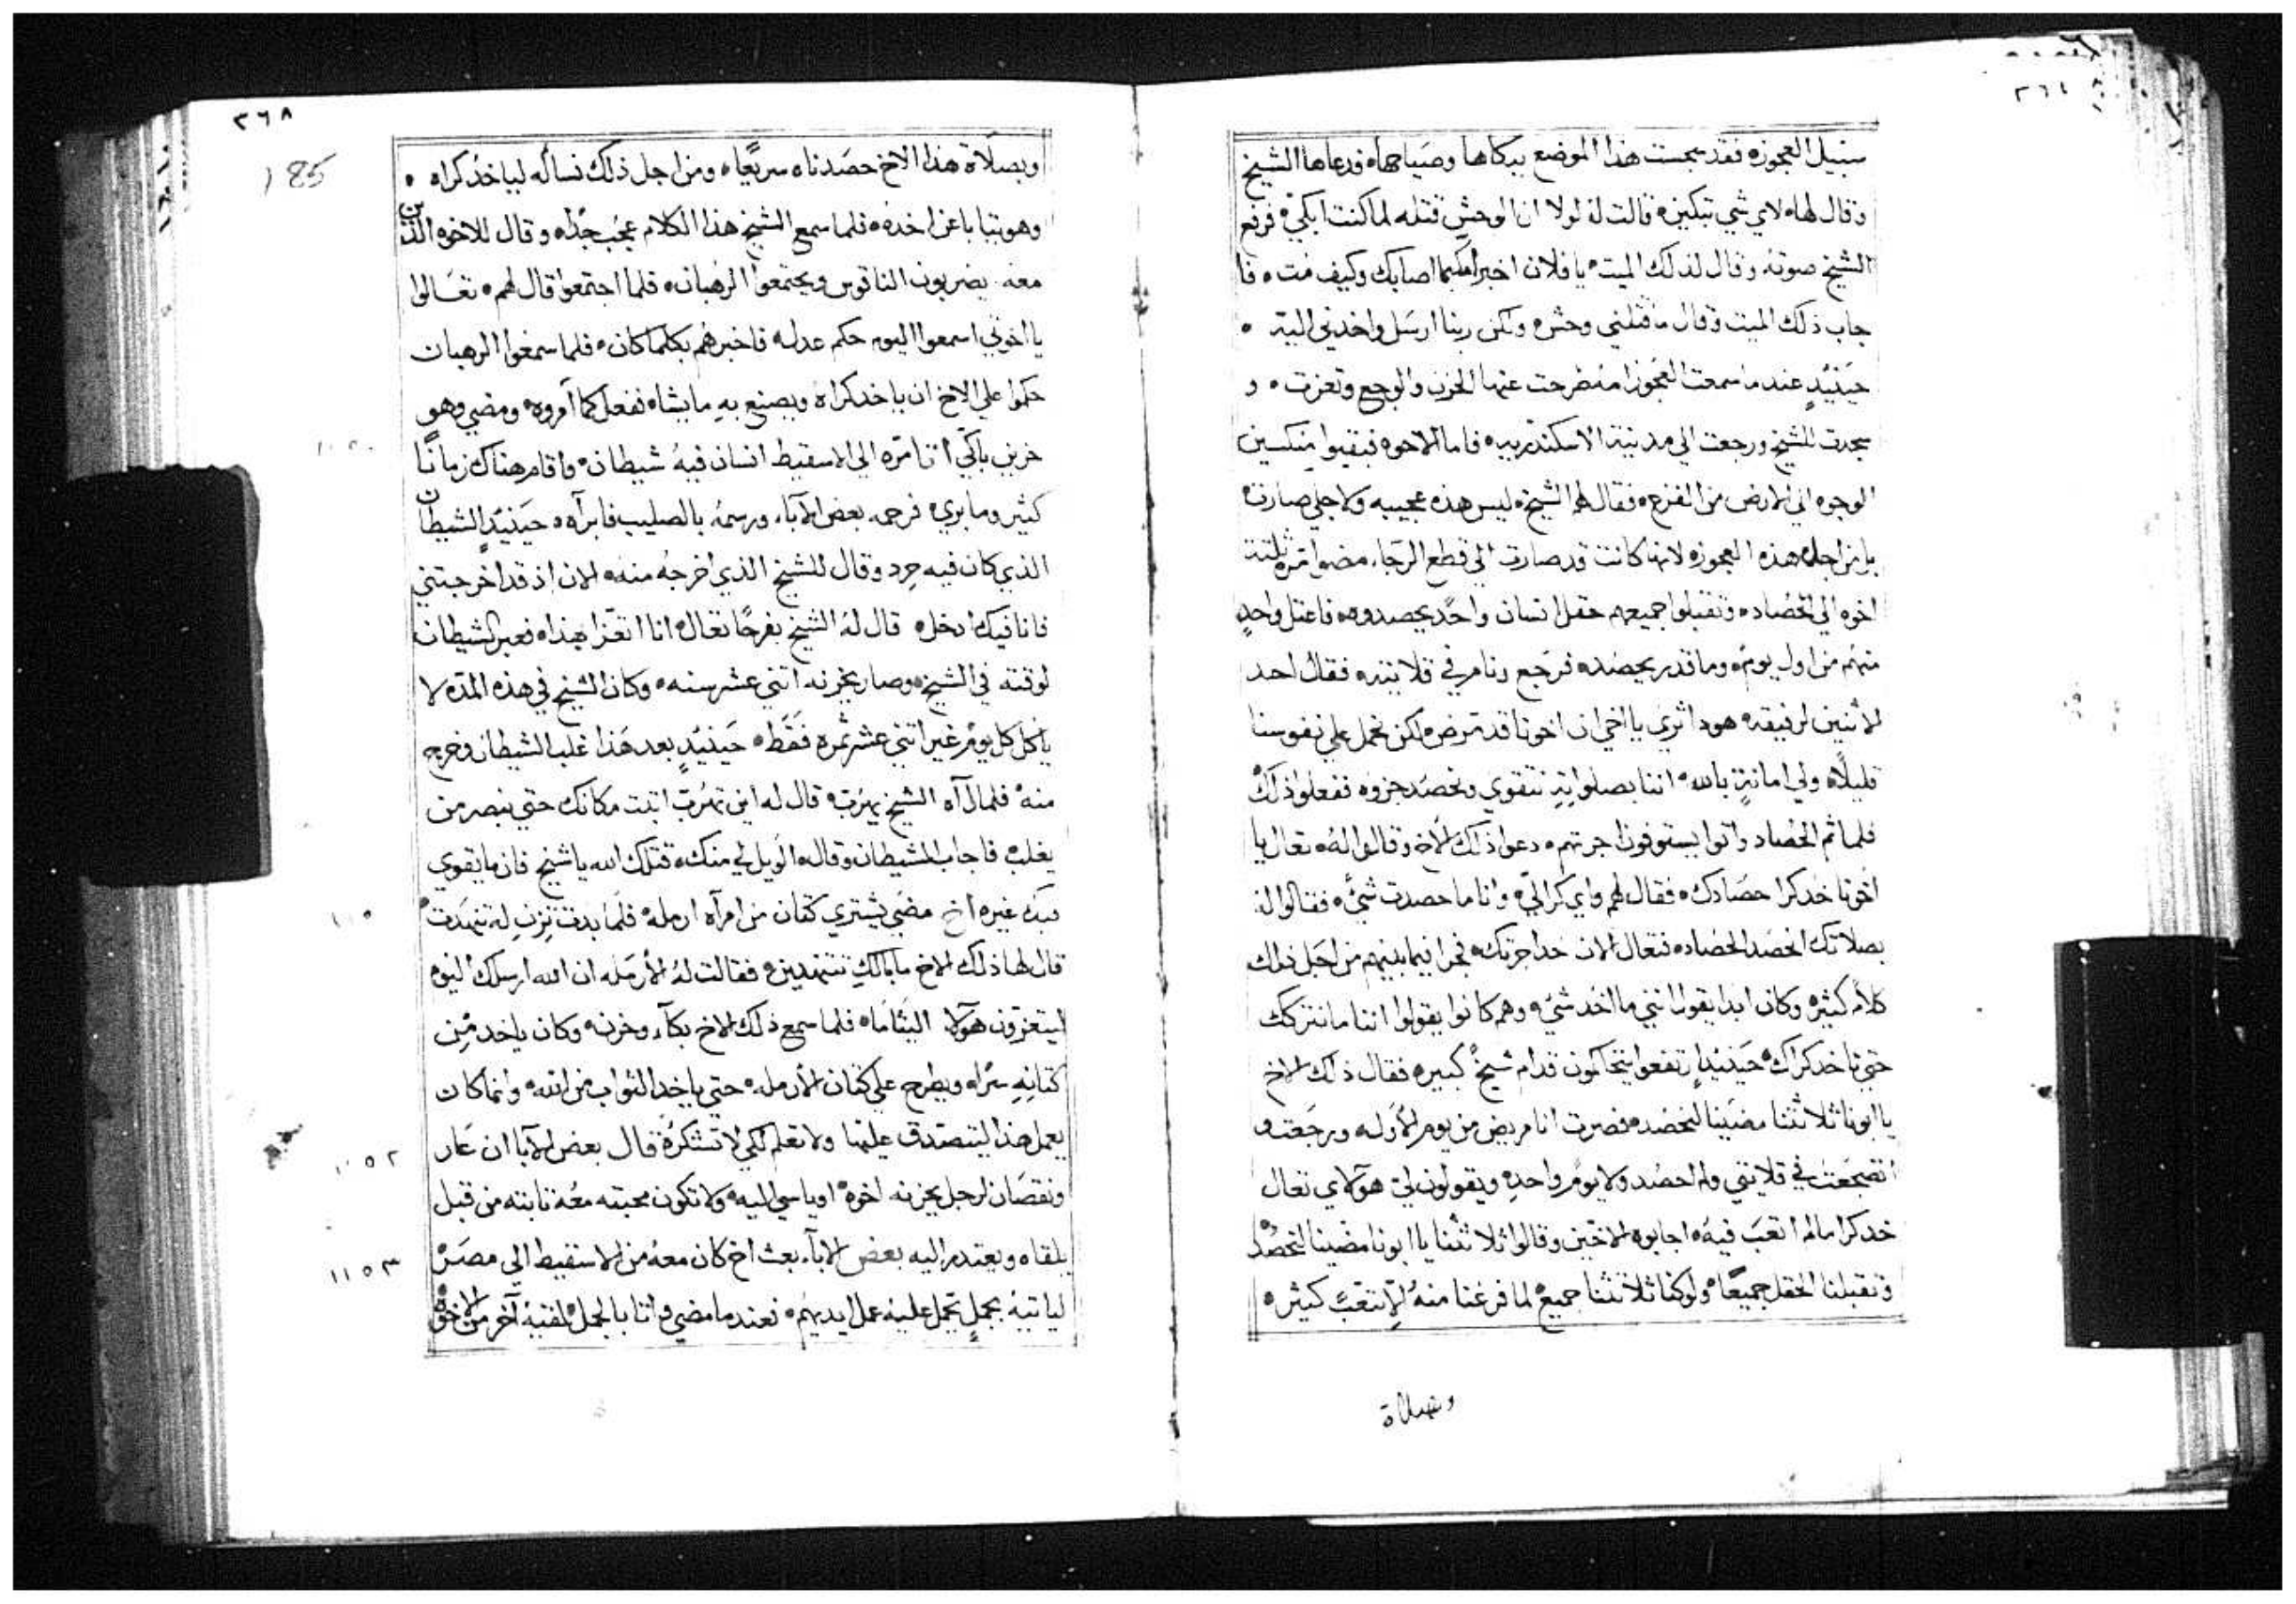 ٣٦٤
سبيل العجوزه فقد سجست هذا الموضع ببكاها وصياحها ٥ فدعاها الشيخ
وقال لها ٥ لاي شي تبكين ٥ قالت له لولا ان الوحش قتله لما كنت ابكي ٥ فرفع
الشيخ صوته وقال لذلك الميت ٥ يا فلان اخبر امك بما اصابك وكيف مت ٥ فا
جاب ذلك الميت وقال ما قتلني وحش ٥ ولكن ربنا ارسل واخدني اليه ٥
حينيدٍ عند ما سمعت العجوز امه طرحت عنها الحزن والوجع وتعزت ٥ و
سجدت للشيخ ورجعت الي مدينة الاسكندريه ٥ فاما الاخوه فبقيوا منكسين
الوجوه الي الارض من الفزع ٥ فقال لهم الشيخ ٥ ليس هذه عجيبه ولا جلي صارت ٥
بل من اجل هذه العجوزه لانها كانت قد صارت الي قطع الرجاء مضوا مره ثلثة
اخوه الي الحصاد ٥ وتقبلوا جميعهم حقل انسان واحدٍ يحصدوه ٥ فاعتل واحدٍ
منهم من اول يوم ٥ وما قدر يحصد ٥ فرجع ونام في قلايته ٥ فقال احد
الاثنين لرفيقه ٥ هودا تري يا اخي ان اخونا قد تمرض ٥ لكن نحمل علي نفوسنا
قليلًا ٥ ولي امانةٍ بالله ٥ اننا بصلواتهِ نتقوي ونحصد جزوه ففعلوا ذلك
فلما تم الحصاد واتوا يستوفون اجرتهم ٥ دعوا ذلك الاخ ٥ وقالوا له ٥ تعال يا
اخونا خد كرا حصادك ٥ فقال لهم واي كرا لي ٥ وانا ما حصدت شي ٥ فقالوا له
بصلاتك انحصد الحصاد ٥ فتعال الان خد اجرتك ٥ فجرا فيما بينهم من اجل ذلك
كلام كثير ٥ وكان ابدا يقول انني ما اخد شي ٥ وهم كانوا يقولوا اننا ما نتركك
حتي تاخد كراك ٥ حينيدٍ ارتفعوا يتحاكمون قدام شيخ كبير ٥ فقال ذلك الاخ
يا ابونا ثلاثتنا مضينا لنحصد ٥ فصرت انا مريض من يوم الاوله ورجعت و
انضجعت في قلايتي ولم احصد ولا يوم واحدٍ ٥ ويقولون لي ٥ هولاي تعال
خد كرا ما لم اتعب فيه ٥ اجابوه الاخين وقالوا ثلاثتنا يا ابونا مضينا لنحصد
وتقبلنا الحقل جميعًا ٥ ولو كنا ثلاثتنا جميع لما فرغنا منه الا بتعب كثير ٥
وبصلاة
٣٦٨
185
وبصلاة هذا الاخ حصدناه سريعًا ٥ ومن اجل ذلك نساله لياخد كراه ٥
وهو يتابا عن اخده ٥ فلما سمع الشيخ هذا الكلام عجب جدًا ٥ وقال للاخوه الذين
معه يضربون الناقوس ويجتمعوا الرهبان ٥ فلما اجتمعوا قال لهم ٥ تعالوا
يا اخوتي اسمعوا اليوم حكم عدله فاخبرهم بكلما كان ٥ فلما سمعوا الرهبان
حكموا علي الاخ ان ياخد كراه ويصنع به ما يشا ٥ ففعل كما امروه ٥ ومضي وهو
حزين باكي اتا مره الي الاسقيط انسان فيه شيطان ٥ واقام هناك زمانًا
كثير وما بري ٥ فرحمه بعض الآباء ورسمه بالصليب فابرآه ٥ حينيدٍ الشيطان
الذي كان فيه حرد وقال للشيخ الذي اخرجه منه ٥ الان اذ قد اخرجتني
فانا فيك ادخل ٥ قال له الشيخ بفرحًا تعال ٥ انا اتعزا بهذا ٥ فعبر الشيطان
لوقته في الشيخ ٥ وصار يحزنه اتني عشر سنه ٥ وكان الشيخ في هذه المده لا
ياكل كل يوم غير اتني عشر تمره فقط ٥ حينيدٍ بعد هذا غلب الشيطان وخرج
منه ٥ فلما رآه الشيخ يهرب ٥ قال له اين تهرب اتبت مكانك حتي نبصر من
يغلب ٥ فاجاب الشيطان وقال ٥ الويل لي منك ٥ قتلك الله يا شيخ فان ما يقوي
فيك غيره اخ مضي يشتري كتان من امرآه ارمله ٥ فلما بدت تزن له تنهدت ٥
قال لها ذلك الاخ ما بالك تتنهدين ٥ فقالت له الارمله ان الله ارسلك اليوم
ليتعزون هولا اليتاما ٥ فلما سمع ذلك الاخ بكآء وحزن ٥ وكان ياخد من
كتانه سرًا ٥ ويطرح علي كتان الارمله ٥ حتي ياخد الثواب من الله ٥ وانما كان
يعمل هذا ليتصدق عليها ولا تعلم لكي لا تشكره قال بعض الآبا ان عار
ونقصان لرجل يحزنه اخوه ٥ او ياسي اليه ٥ ولا تكون محبته معه ثابته من قبل
يلقاه ويعتدر اليه بعض الابآء بعث اخ كان معه من الاسقيط الي مصر ٥
لياتيه بجمل تحمل عليه عمل ايديهم ٥ فعند ما مضي واتا بالجمل لقيه آخر من الاخوه
١١٥٢
١١٥٣